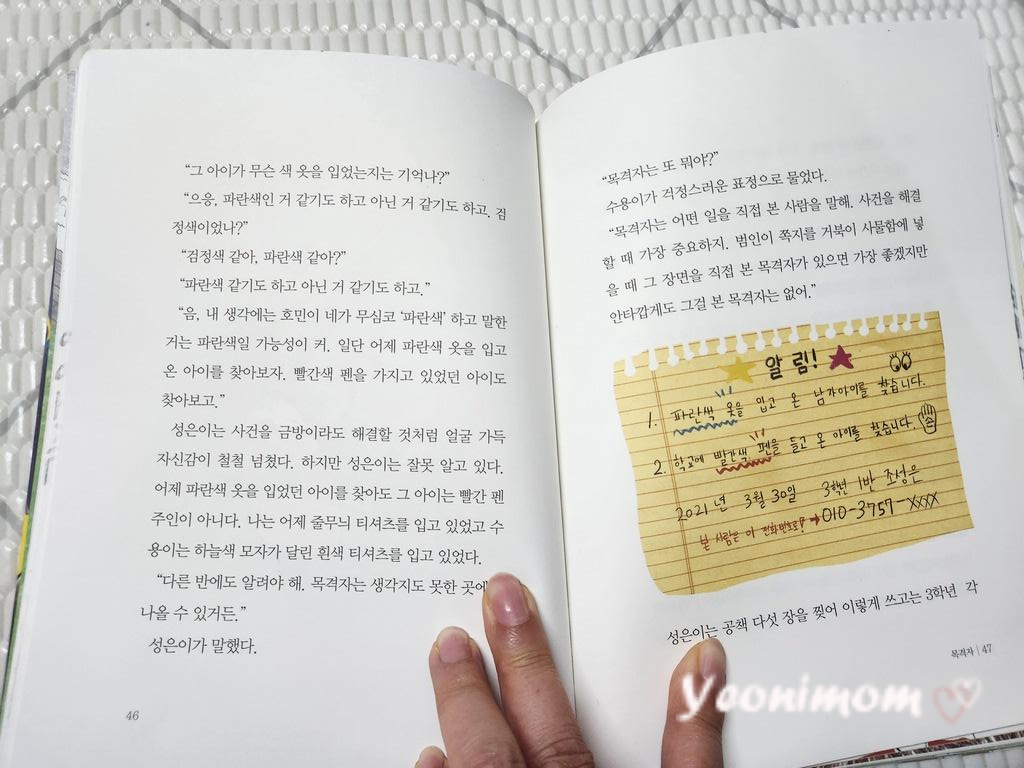 “그 아이가 무슨 색 옷을 입었는지는 기억나?”
“으응, 파란색인 거 같기도 하고 아닌 거 같기도 하고. 검
정색이었나?”
“검정색 같아, 파란색 같아?”
“파란색 같기도 하고 아닌 거 같기도 하고.”
“음, 내 생각에는 호민이 네가 무심코 ‘파란색’ 하고 말한
거는 파란색일 가능성이 커. 일단 어제 파란색 옷을 입고
온 아이를 찾아보자. 빨간색 펜을 가지고 있었던 아이도
찾아보고.”
성은이는 사건을 금방이라도 해결할 것처럼 얼굴 가득
자신감이 철철 넘쳤다. 하지만 성은이는 잘못 알고 있다.
어제 파란색 옷을 입었던 아이를 찾아도 그 아이는 빨간 펜
주인이 아니다. 나는 어제 줄무늬 티셔츠를 입고 있었고 수
용이는 하늘색 모자가 달린 흰색 티셔츠를 입고 있었다.
“다른 반에도 알려야 해. 목격자는 생각지도 못한 곳에
나올 수 있거든.”
성은이가 말했다.
46
“목격자는 또 뭐야?”
수용이가 걱정스러운 표정으로 물었다.
“목격자는 어떤 일을 직접 본 사람을 말해. 사건을 해결
할 때 가장 중요하지. 범인이 쪽지를 거북이 사물함에 넣
을 때 그 장면을 직접 본 목격자가 있으면 가장 좋겠지만
안타깝게도 그걸 본 목격자는 없어.”
알림!
1. 파란색 옷을 입고 온 남자아이를 찾습니다.
2. 학교에 빨간색 펜을 들고 온 아이를 찾습니다.
2021년 3월 30일 3학년 1반 조성은
본 사람은 이 전화번호로! → 010-3757-xxxx
성은이는 공책 다섯 장을 찢어 이렇게 쓰고는 3학년 각
목격자 | 47
Yeonimom